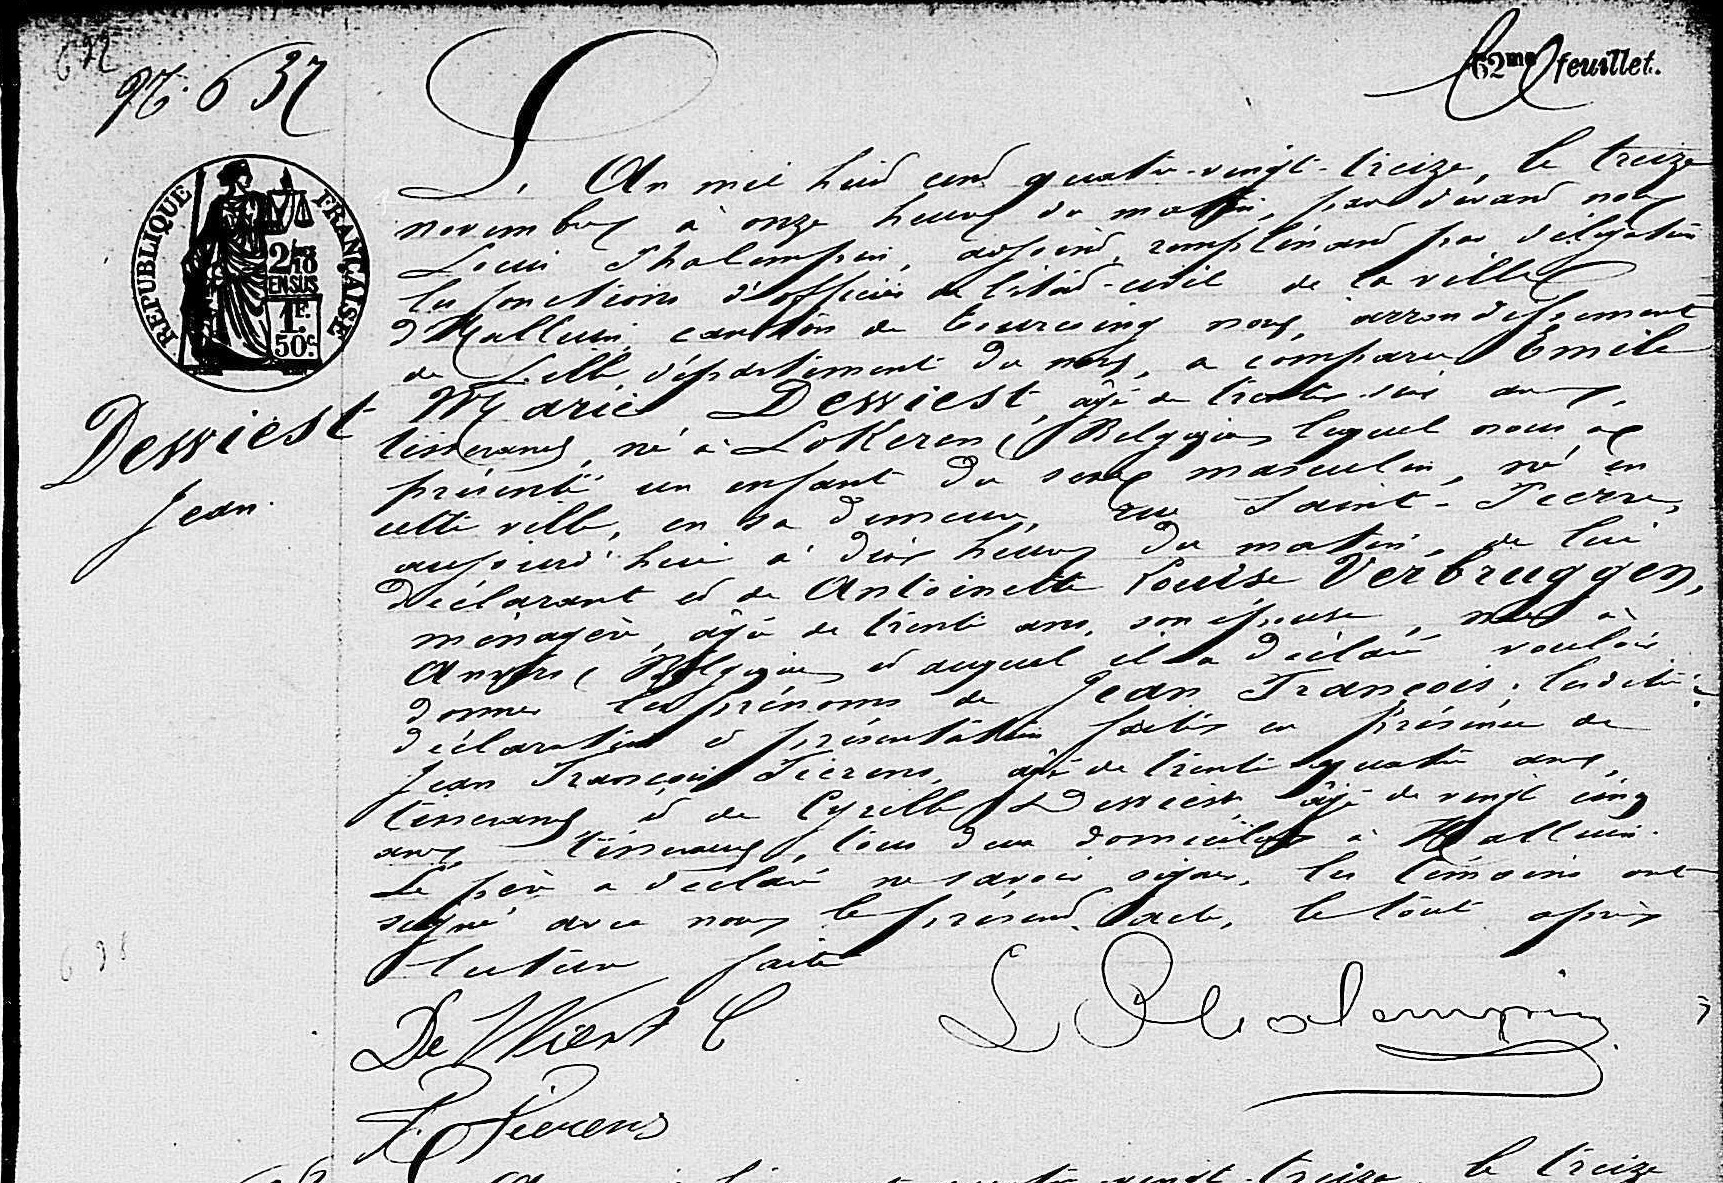 632
N° 637
62me feuillet.
REPUBLIQUE FRANÇAISE
2/10
EN SUS
1F.
50c.
L'An mil huit cent quatre-vingt-treize, le treize
novembre à onze heures du matin, par devant nous
Louis Phalempin, adjoint, remplissant par délégation
les fonctions d'officier de l'état-civil de la ville
d'Halluin, canton de Tourcoing nord, arrondissement
de Lille, département du nord, a comparu Emile
Marie Dewiest, âgé de trente-six ans,
Dewiest
Jean
tisserand, né à Lokeren (Belgique) lequel nous a
présenté un enfant du sexe masculin, né en
cette ville, en sa demeure, rue Saint-Pierre,
aujourd'hui à dix heures du matin, de lui
déclarant et de Antoinette Louise Verbruggen,
ménagère, âgée de trente ans, son épouse, née à
Anvers (Belgique) et auquel il a déclaré vouloir
donner les prénoms de Jean François; lesdites
déclaration et présentation faites en présence de
Jean François Tierens, âgé de trente quatre ans,
tisserand et de Cyrille Dewiest âgé de vingt cinq
ans, tisserand, tous deux domiciliés à Halluin.
Le père a déclaré ne savoir signer, les témoins ont
signé avec nous le présent acte, le tout après
lecture faite
638
De Wiest C
L Phalempin
Tierens
treize, le treize